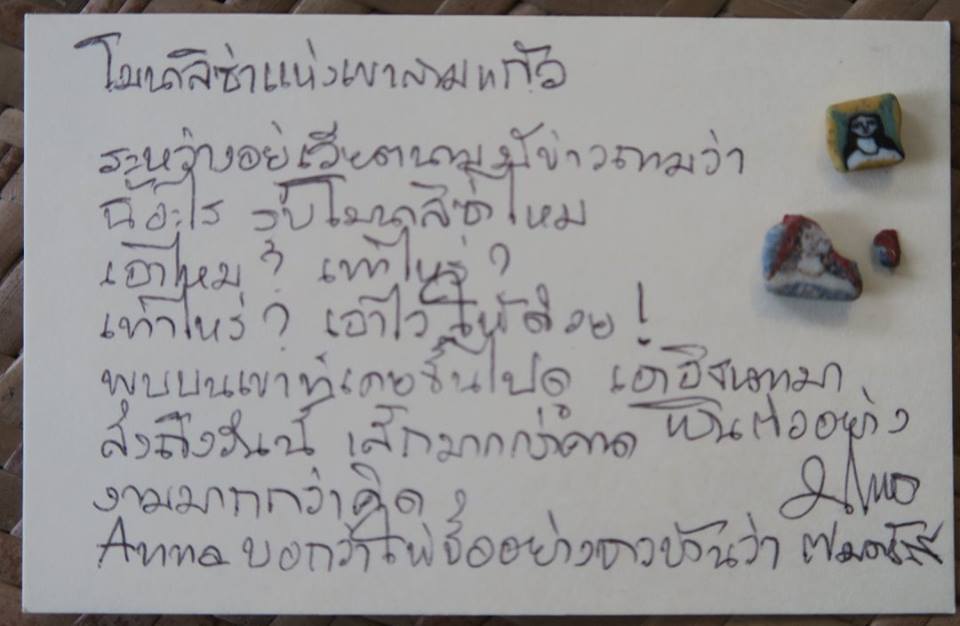 โมนาลิซ่าแห่งเขาสามแก้ว
ระหว่างอยู่เวียตนามมีข่าวถามว่า
นี่อะไร รูปโมนาลิซ่าไหม
เอาไหม? เท่าไหร่?
เท่าไหร่? เอาไว้ให้ด้วย!
พบบนเขาที่เคยขึ้นไปดู เอามา
ส่งถึงวันนี้ เล็กมากกว่าคาด เป็นตัวอย่าง
งามมากกว่าคิด
Anna บอกว่าให้ชื่ออย่างชาวบ้านว่า